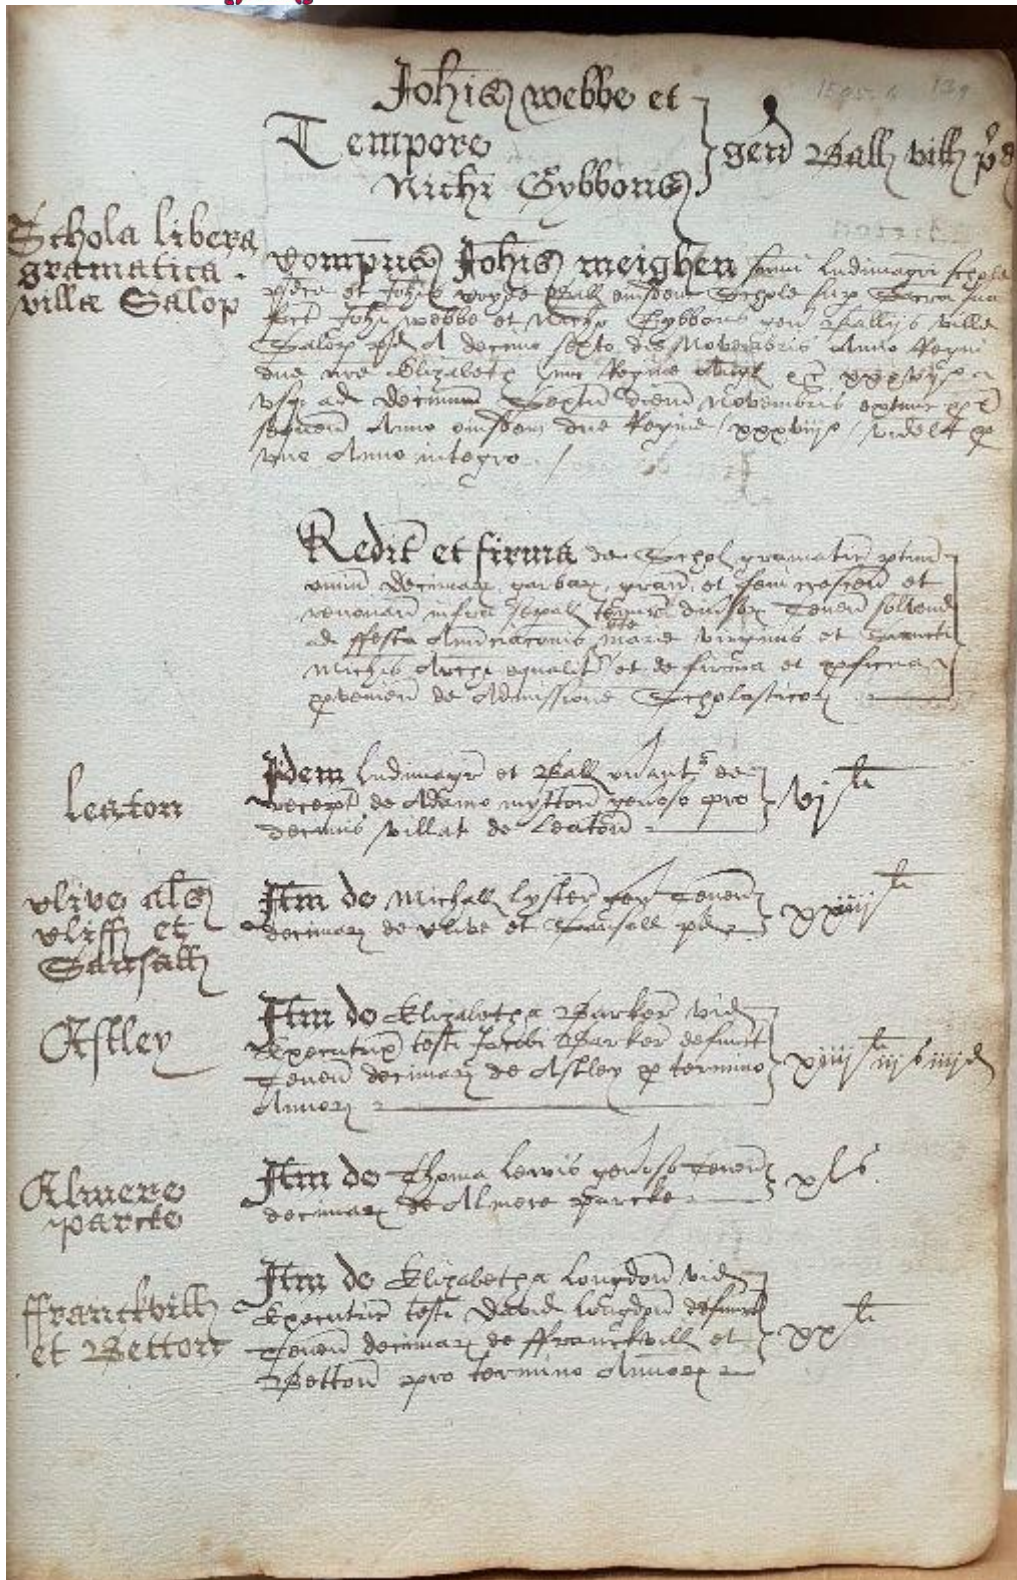 Joh̃is webbe et
Tempore
Nichi Gybbons
geñ Ball vill p̃d
1595. 139
Schola libera
gramatica
villæ Salop
Compus Joh̃is meighen sumi Ludimagri Schole
p̃dce et Joh̃is Ball eiusdem Schole sup Sacra sua
fact Joh̃i webbe et Nicho Gybbons gen Ballijs ville
Salop p̃d A decimo septo die Novembris Anno Regni
dne nre Elizabeth nuc Regine Angł &c̃ xxxvijo
vsq ad decimum Septũ diem Novembris extunc
sequeñ Anno eiusdem dne Regine / xxxviijo / videlt p
vno Anno integro. /
Redit et firma de Schol gramatic ptineñ
omiũ decimar garbar, granoȝ et feni crescen et
renovañ infra sepał dimiss Teneñ solvend
ad ffesta Annũciaconis bte marie virginis et Sancti
Michis Archi equalit et de firma et
pvenieñ de Admissione Scholasticor
leaton
Idem Ludimagr et Ball onant de
recept de Adamo mytton genoso pro
decimis villat de Leaton
vj li
Clive als
Cliff et
Sansall
Itm de Michaell lyster geñ Teneñ
decimar de Clive et Sansall p̃d
xxiiij li
Astley
Itm de Elizabetha Barker vid
Executric testi Jacobi Barker defunct
Teneñ decimar de Astley p termino
Annor
xiiij li iij s iiij d
Almere
parcke
Itm de Thoma Lewis genoso Teneñ
decimar de Almere parcke
xl s
ffranckvill
et Betton
Itm de Elizabetha Longdon vid
Executric testi David Longdon defunct
Teneñ decimar de ffranckvill et
Betton pro termino Annor
xx li